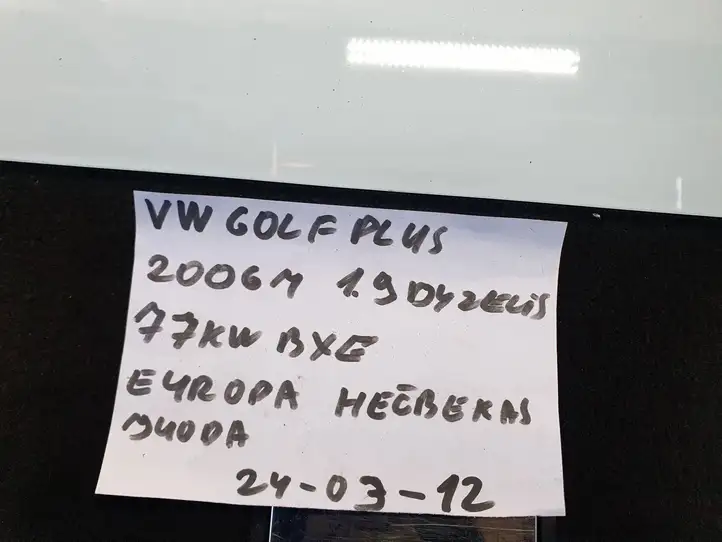 VW GOLF PLUS
2006M 1.9 DYZELIS
77KW BXE
EUROPA HEČBEKAS
JUODA
24-03-12